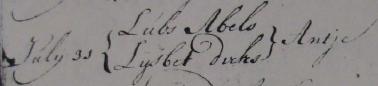 Lubs Abels
July 31 { } Antje
Lysbet dirks